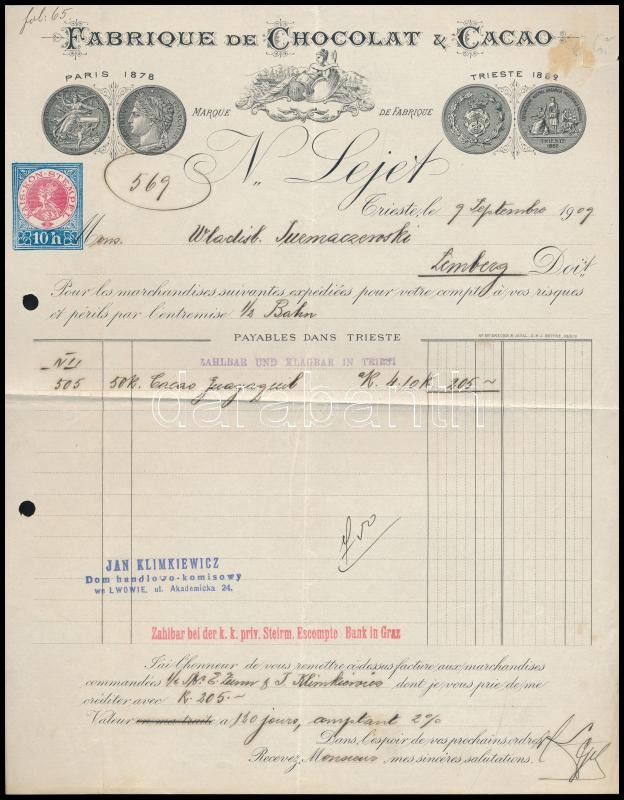 fol: 65
FABRIQUE DE CHOCOLAT & CACAO
PARIS 1878
TRIESTE 1882
MARQUE DE FABRIQUE
TRIESTE
1882
N. Lejet
569
KAIS·KÖN·STEMPEL
10 h
Trieste, le 9 Septembre 1909
Mons. Wladisl.
Lemberg Doit
Pour les marchandises suivantes expédiées pour votre compte à vos risques
et périls par l'entremise 1/2 Bahn
PAYABLES DANS TRIESTE
ZAHLBAR UND KLAGBAR IN TRIEST
505 50K. Cacao K. 4.10 K 205 ~
darabanth
JAN KLIMKIEWICZ
Dom handlowo-komisowy
we LWOWIE, ul. Akademicka 24.
Zahlbar bei der k. k. priv. Steierm. Escompte - Bank in Graz
J'ai l'honneur de vous remettre ci-dessus facture aux marchandises
commandées & J. Klimkiewicz dont je vous prie de me
créditer avec K. 205.-
Valeur en ma traite a 180 jours, comptant 2%
Dans l'espoir de vos prochains ordres
Recevez, Monsieur, mes sincères salutations.